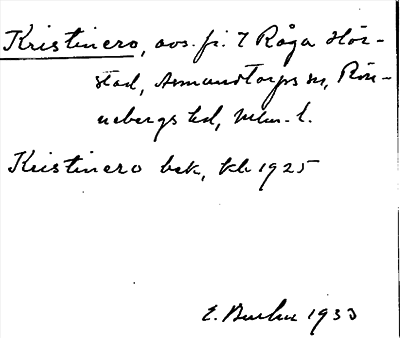 Kristinero, avs. fr. 7 Råga Hör-
stad, Asmundtorps sn, Rön-
nebergs hd, Mlm. l.
Kristinero bek, kb 1925
E. 1933